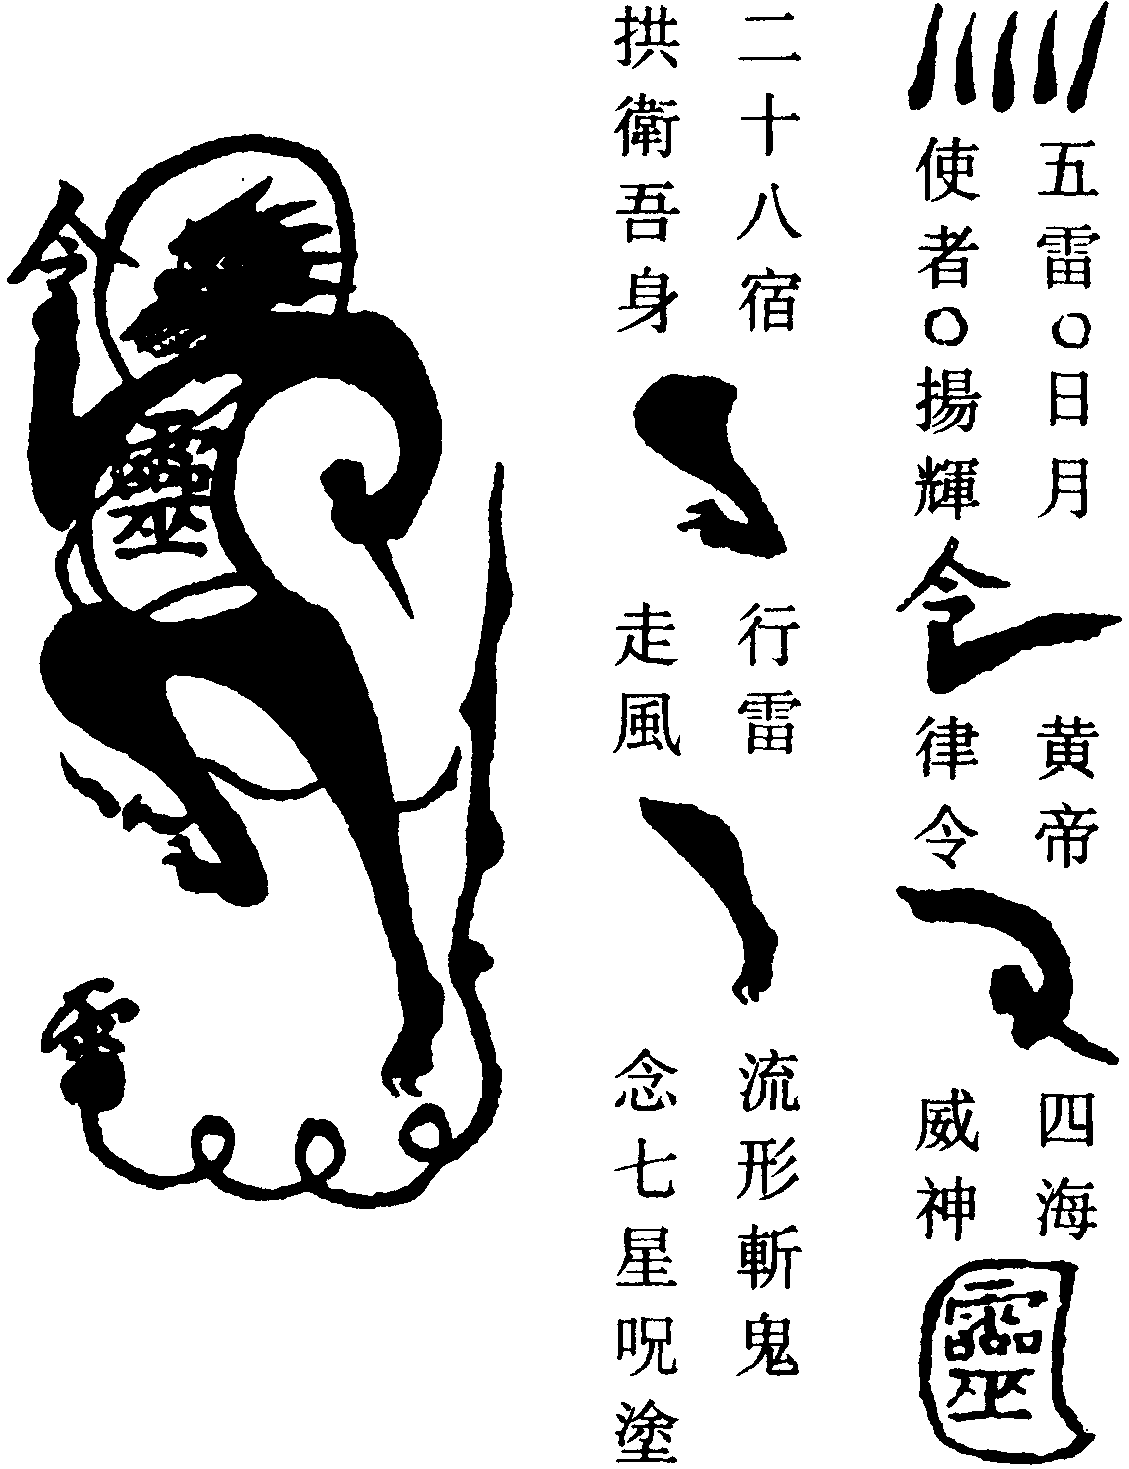 五雷○日月
使者○揚輝
令
黄帝
律令
四海
威神
靈
二十八宿
拱衛吾身
行雷
走風
流形斬鬼
念七星呪塗
令
靈
雷